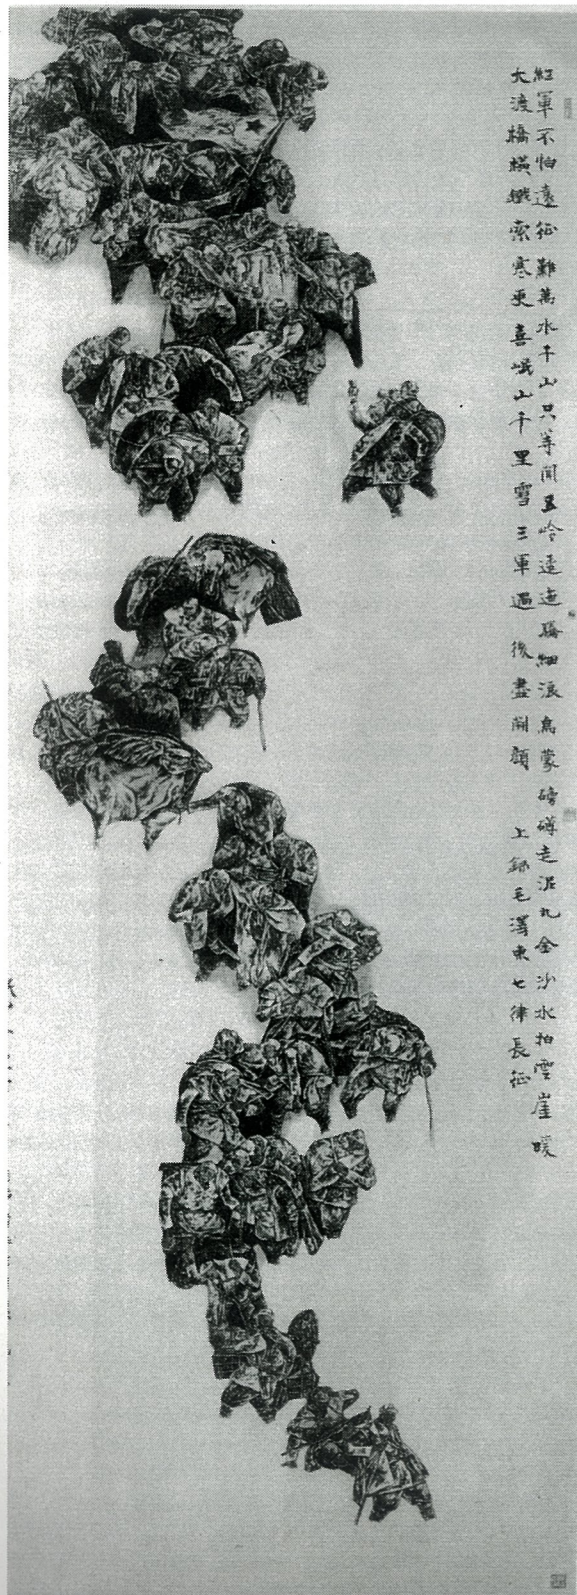 紅軍不怕遠征難萬水千山只等閒五岭逶迤騰細浪烏蒙磅礴走泥丸金沙水拍雲崖暖
大渡橋橫鐵索寒更喜岷山千里雪三軍過後盡開顏 上錄毛澤東七律長征